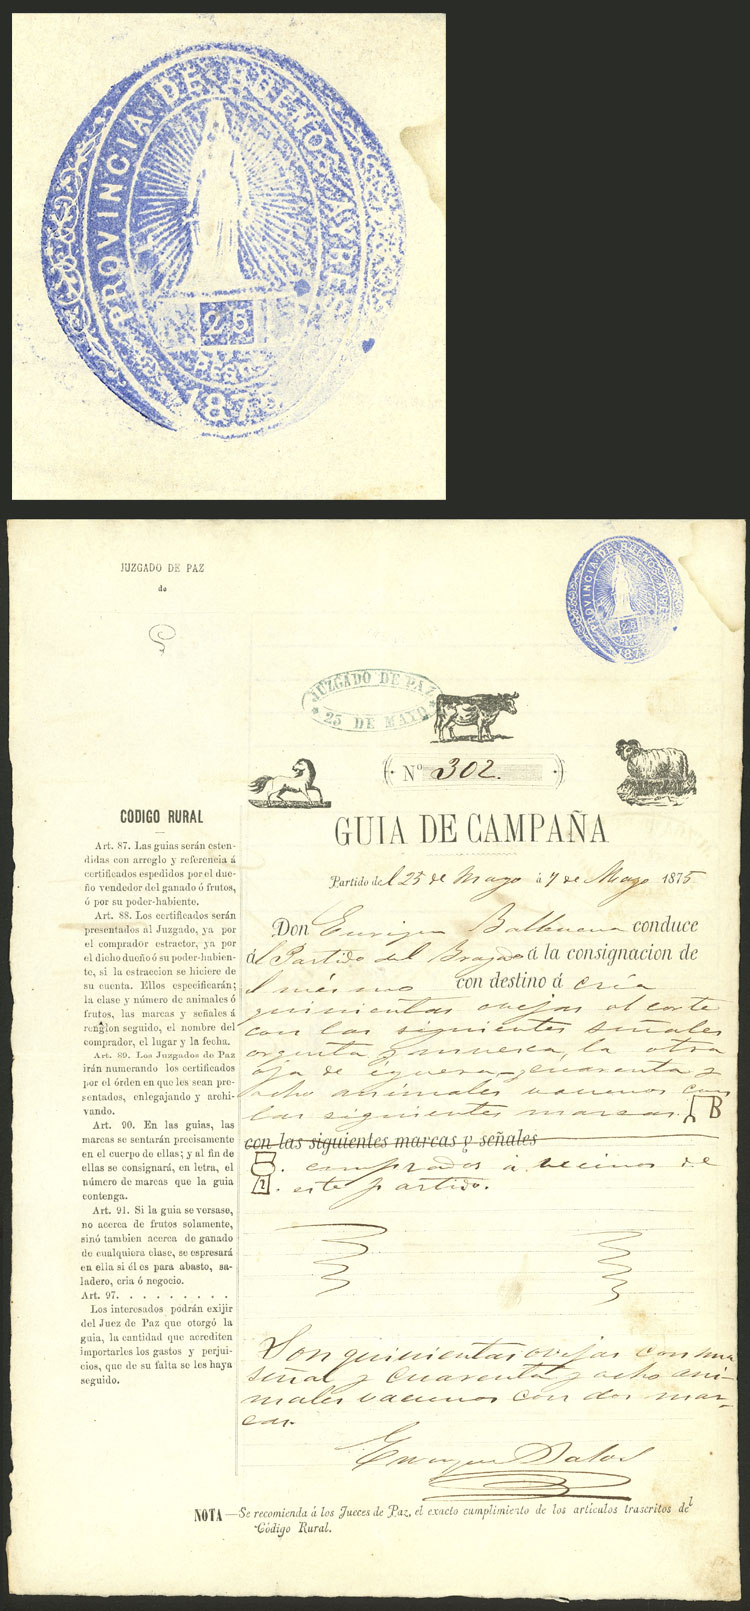 PROVINCIA DE BUENOS AYRES
25
PESOS
187
JUZGADO DE PAZ
de
PROVINCIA DE BUENOS AYRES
25
187
JUZGADO DE PAZ
25 DE MAYO
Nº 302.
GUIA DE CAMPAÑA
Partido del 25 de Mayo á 7 de Mayo 1875
Don Enrique Balbuena conduce
al Partido del Bragado á la consignacion de
el mismo con destino á cría
quinientas ovejas al corte
con las siguientes señales
orqueta y muesca, la otra
oja de iguera, y cuarenta y
ocho animales vacunos con
las siguientes marcas. B
con las siguientes marcas y señales
2 . comprados á vecinos de
este partido.
Son quinientas ovejas con una
señal y cuarenta y ocho ani-
males vacunos con dos mar-
cas.
Enrique
CODIGO RURAL
Art. 87. Las guias serán esten-
didas con arreglo y referencia á
certificados espedidos por el due-
ño vendedor del ganado ó frutos,
ó por su poder-habiente.
Art. 88. Los certificados serán
presentados al Juzgado, ya por
el comprador estractor, ya por
el dicho dueño ó su poder-habien-
te, si la estraccion se hiciere de
su cuenta. Ellos especificarán;
la clase y número de animales ó
frutos, las marcas y señales á
renglon seguido, el nombre del
comprador, el lugar y la fecha.
Art. 89. Los Juzgados de Paz
irán numerando los certificados
por el órden en que les sean pre-
sentados, enlegajando y archi-
vando.
Art. 90. En las guias, las
marcas se sentarán precisamente
en el cuerpo de ellas; y al fin de
ellas se consignará, en letra, el
número de marcas que la guia
contenga.
Art. 91. Si la guia se versase,
no acerca de frutos solamente,
sinó tambien acerca de ganado
de cualquiera clase, se espresará
en ella si él es para abasto, sa-
ladero, cria ó negocio.
Art. 97. . . . . . . . . .
Los interesados podrán exijir
del Juez de Paz que otorgó la
guia, la cantidad que acrediten
importarles los gastos y perjui-
cios, que de su falta se les haya
seguido.
NOTA—Se recomienda á los Jueces de Paz, el exacto cumplimiento de los artículos trascritos del
Código Rural.